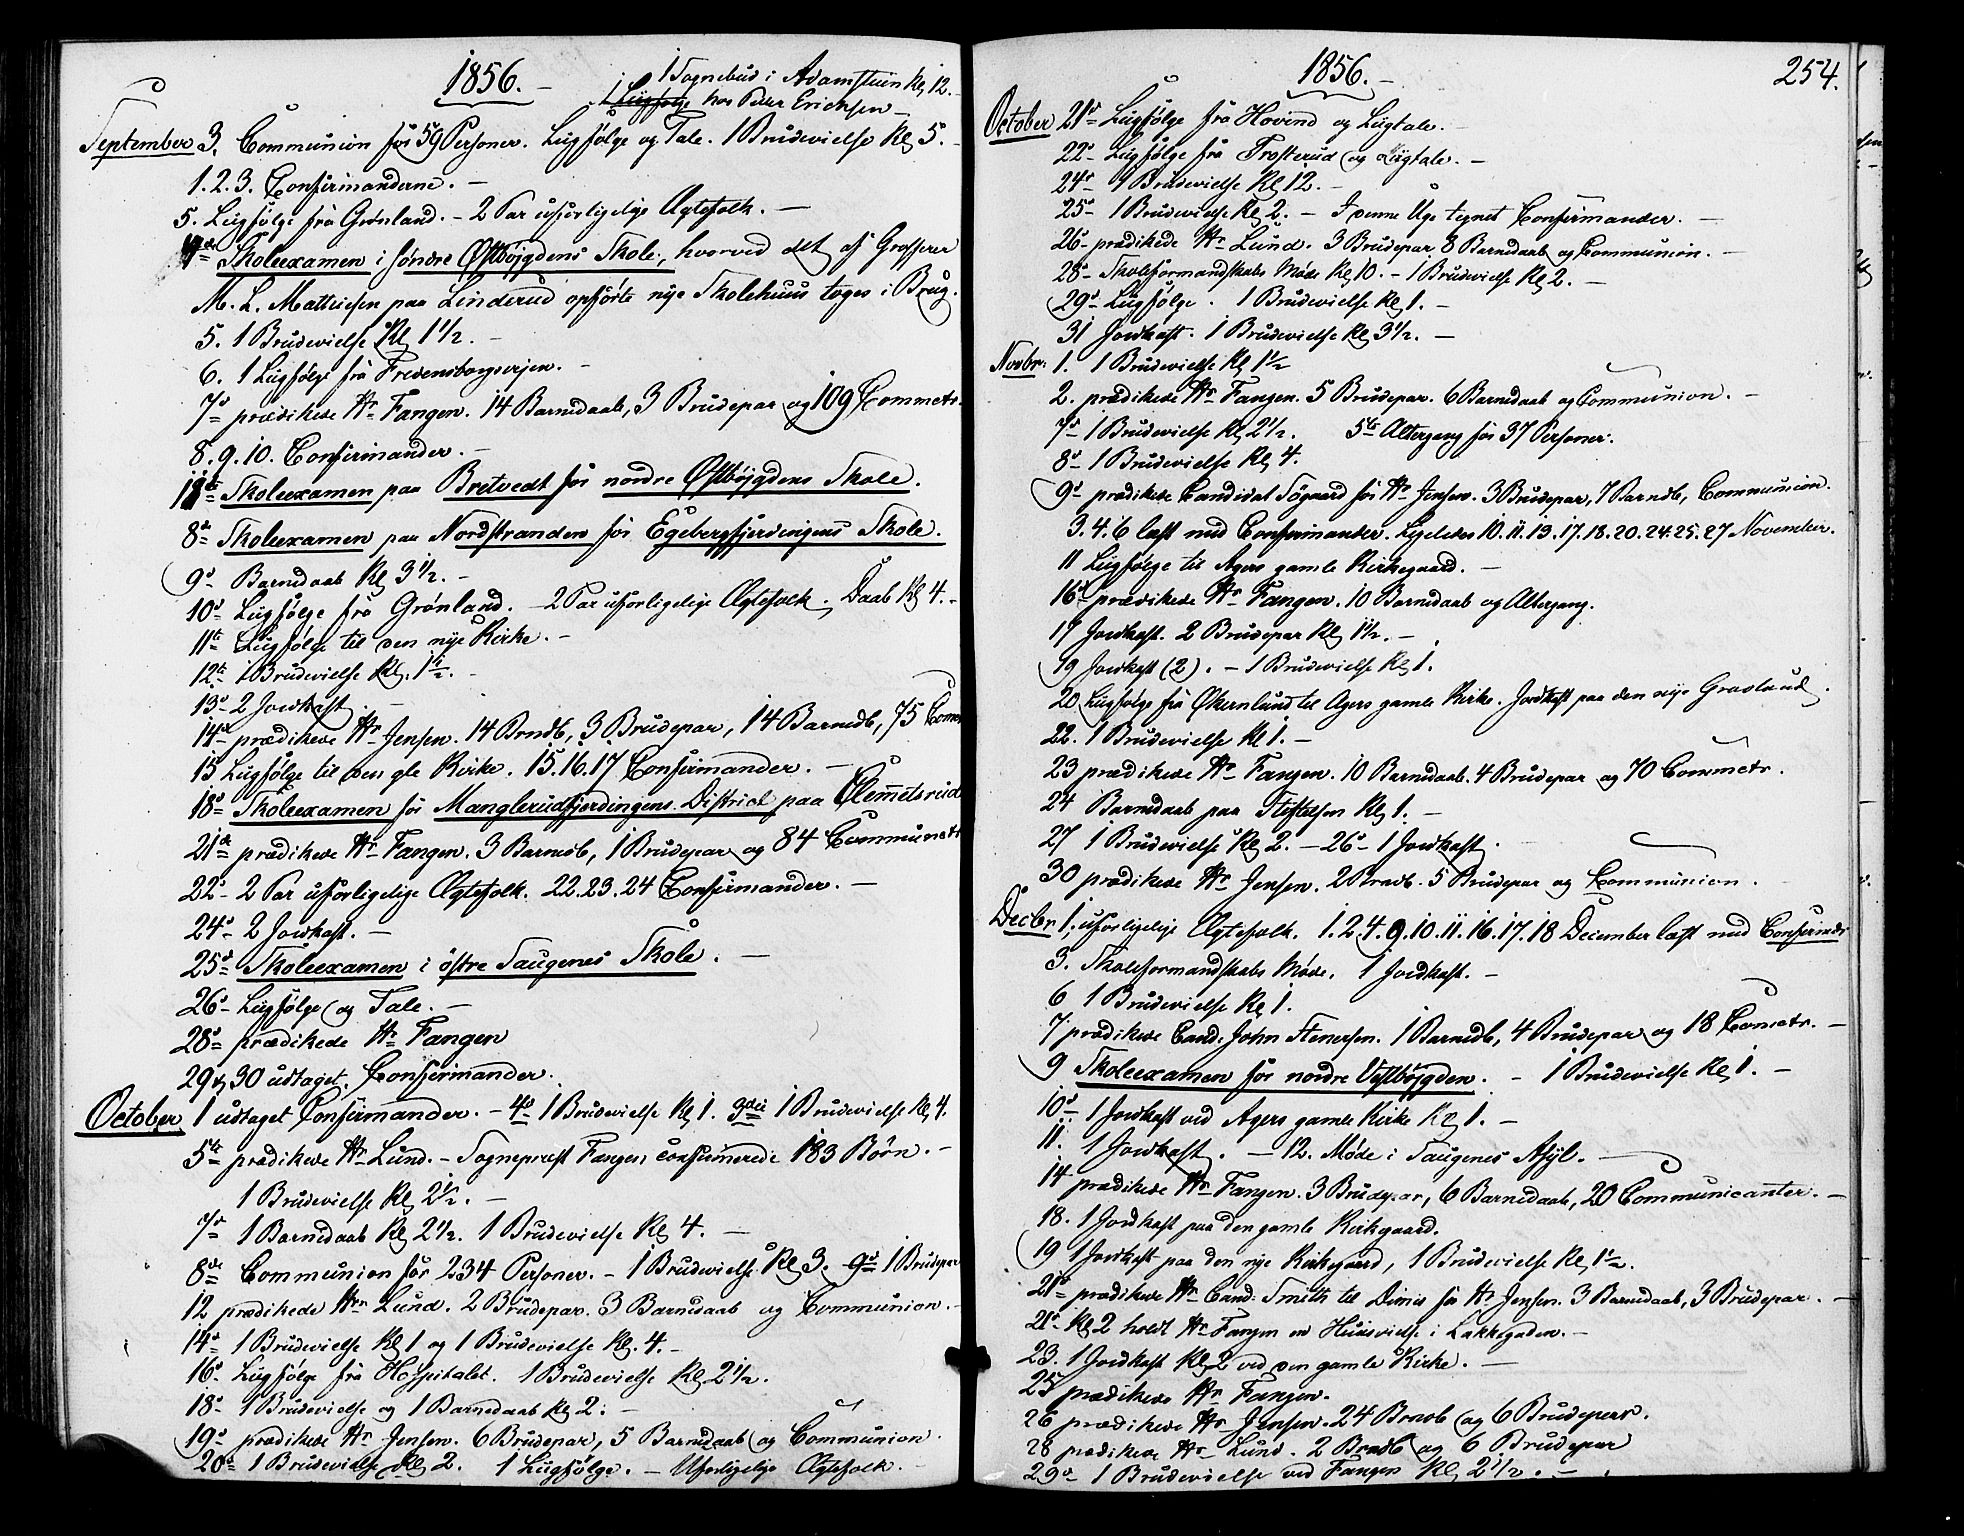 1856.
1 Sognebud i Adamstuen Kl 12.
1 Liigfølge hos Peter Erichsen
September 3. Communion for 59 Personer. Liigfølge og Tale. 1 Brudevielse Kl 5.
1. 2. 3. Confirmanderne.
5. Liigfølge frå Grønland. - 2 Par uforligelige Ægtefolk.
4de Skoleexamen i søndre Østbøjgdens Skole, hvorved det af Grosserer
M. L. Mathiesen paa Linderud opførte nye Skolehuus toges i Brug.
5. 1 Brudevielse Kl 1 1/2.
6. 1 Liigfølge frå Fredensborgvejen.
7d prædikede Hr Fangen. 14 Barnedaab, 3 Brudepar og 109 Commctr.
8. 9. 10. Confirmander.
11te Skoleexamen paa Bretvedt for nordre Østbøjgdens Skole.
8de Skoleexamen paa Nordstranden for Egebergfjerdingens Skole.
9d Barnedaab Kl 3 1/2.
10d Liigfølge frå Grønland. - 2 Par uforligelige Ægtefolk. Daab Kl 4.
11te Liigfølge til den nye Kirke.
12te 1 Brudevielse Kl. 1 1/2.
13d 2 Jordkast.
14de prædikede Hr Jensen. 14 Brndb, 3 Brudepar, 14 Barnedb, 75 Comm
15 Liigfølge til den gle Kirke. 15. 16. 17 Confirmander.
18d Skoleexamen for Manglerudfjerdingens District paa Clemmetsrud
21de prædikede Hr Fangen. 3 Barnedb, 1 Brudepar og 84 Communctr
22d 2 Par uforligelige Ægtefolk. 22. 23. 24 Confirmander.
24d 2 Jordkast.
25d Skoleexamen i østre Saugenes Skole.
26d Liigfølge og Tale.
28d prædikede Hr Fangen
29 & 30 udtaget Confirmander.
October 1 udtaget Confirmander. - 4d 1 Brudevielse Kl 1. 3die 1 Brudevielse Kl 4.
5te prædikede Hr Lund. - Sognepræst Fangen confirmerede 183 Børn.
1 Brudevielse Kl 2 1/2.
7d 1 Barnedaab Kl 2 1/2. 1 Brudevielse Kl 4.
8de Communion for 234 Personer. - 1 Brudevielse Kl 3. 9d 1 Brudepar
12 prædikede Hr Lund. 2 Brudepar. 3 Barnedaab og Communion.
14d 1 Brudevielse Kl 1 og 1 Brudevielse Kl. 4.
16d Liigfølge frå Hospitalet. 1 Brudevielse Kl 2 1/2.
18d 1 Brudevielse og 1 Barnedaab Kl 2.
19d prædikede Hr Jensen. 6 Brudepar, 5 Barnedaab og Communion.
20d 1 Brudevielse Kl 2. 1 Liigfølge. - Uforligelige Ægtefolk.
1856.
254.
October 21d Liigfølge frå Hovind og Liigtale.
22d Liigfølge frå Trosterud og Liigtale.
24d 1 Brudevielse Kl 12.
25d 1 Brudevielse Kl 2. - I denne Uge tegnet Confirmander.
26 prædikede Hr Lund. 3 Brudepar, 8 Barnedaab og Communion.
28d Skoleformandskabs Møde Kl 10. - 1 Brudevielse Kl 2.
29d Liigfølge. 1 Brudevielse Kl 1.
31 Jordkast. 1 Brudevielse Kl 3 1/2.
Novbr. 1. 1 Brudevielse Kl 1 1/2
2. prædikede Hr Fangen. 5 Brudepar. 6 Barnedaab og Communion.
7d 1 Brudevielse Kl 2 1/2. 5te Altergang for 37 Personer.
8d 1 Brudevielse Kl 4.
9d prædikede Candidat Søgaard for Hr Jensen. 3 Brudepar, 7 Barndb, Communion.
3. 4. 6 læst med Confirmander. Ligeledes 10. 11. 13. 17. 18. 20. 24. 25. 27 November.
11 Liigfølge til Agers gamle Kirkegaard.
16d prædikede Hr Fangen. 10 Barnedaab og Altergang.
17 Jordkast. 2 Brudepar Kl 1 1/2.
19 Jordkast (2). - 1 Brudevielse Kl 1.
20 Liigfølge frå Økernlund til Agers gamle Kirke. Jordkast paa den nye Gravlund.
22. 1 Brudevielse Kl 1.
23 prædikede Hr Fangen. 10 Barnedaab. 4 Brudepar og 70 Commctr.
24 Barnedaab paa Stiftelsen Kl 1.
27 1 Brudevielse Kl 2. - 26d 1 Jordkast.
30 prædikede Hr Jensen. 2 Brndb. 5 Brudepar og Communion.
Decbr 1. uforligelige Ægtefolk. 1. 2. 4. 9. 10. 11. 16. 17. 18 December læst med Confirmdr
3. Skoleformandskabs Møde. 1 Jordkast.
6 1 Brudevielse Kl 1.
7 prædikede Cand. John Stenersen. 1 Barnedb, 4 Brudepar og 18 Comctr.
9 Skoleexamen for nordre Vestbøjgden. - 1 Brudevielse Kl 1.
10d 1 Jordkast ved Agers gamle Kirke Kl 1.
11. 1 Jordkast. - 12. Møde i Saugenes Asyl.
14 prædikede Hr Fangen. 3 Brudepar, 6 Barnedaab, 20 Communicanter.
18. 1 Jordkast paa den gamle Kirkegaard.
19 1 Jordkast paa den nye Kirkegaard, 1 Brudevielse Kl 1 1/2.
21d prædikede Hr Cand. Smith til Dimis for Hr Jensen. 3 Barnedaab, 3 Brudepar.
21d Kl 2 holdt Hr Fangen en Huusvielse i Lakkegaden.
23. 1 Jordkast Kl 2 ved den gamle Kirke.
25 prædikede Hr Fangen.
26 prædikede Hr Jensen. 24 Brndb og 6 Brudeparr.
28 prædikede Hr Lund. 2 Brndb og 6 Brudepar
29d 1 Brudevielse ved Fangen Kl 2 1/2.